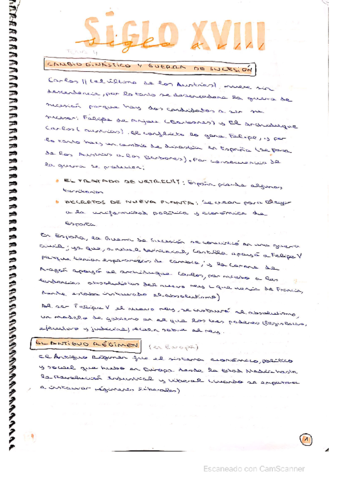 SIGLO XVIII
siglo XVIII
CAMBIO DINÁSTICO Y GUERRA DE SUCESIÓN
Carlos II (el último de los Austrias) muere sin
descendencia, por lo tanto se desencadena la guerra de
sucesión porque hay dos candidatos a ser su
sucesor: Felipe de Anjou (Borbones) y El archiduque
Carlos (Austrias). El conflicto lo gana Felipo, y por
lo tanto hay un cambio de dinastía en España (se pasa
de los Austrias a los Borbones). Por consecuencia de
la guerra se producen:
EL TRATADO DE UTRECHT: España pierde algunos
territorios
DECRETOS DE NUEVA PLANTA: Se crean para llegar
a la uniformidad política y económica de
España
En España, la Guerra de Sucesión se convirtió en una guerra
civil; ya que, a nivel territorial, Castilla apoyó a Felipe V
porque tenían experiencia de cambio; y la Corona de
Aragón apoyó al archiduque Carlos, por miedo a las
tendencias absolutistas del nuevo rey (que venía de Francia,
donde estaba instaurado el absolutismo)
Al ser Felipe V el nuevo rey, se instauró el absolutismo,
un modelo de gobierno en el que los tres poderes (legislativo,
ejecutivo y judicial) recaen sobre el rey.
EL ANTIGUO RÉGIMEN (en Europa)
El Antiguo Régimen fue el sistema económico, político
y social que hubo en Europa desde la Edad Moderna hasta
la Revolución Industrial y liberal (cuando se empiezan
a instaurar regímenes liberales)
1
Escaneado con CamScanner